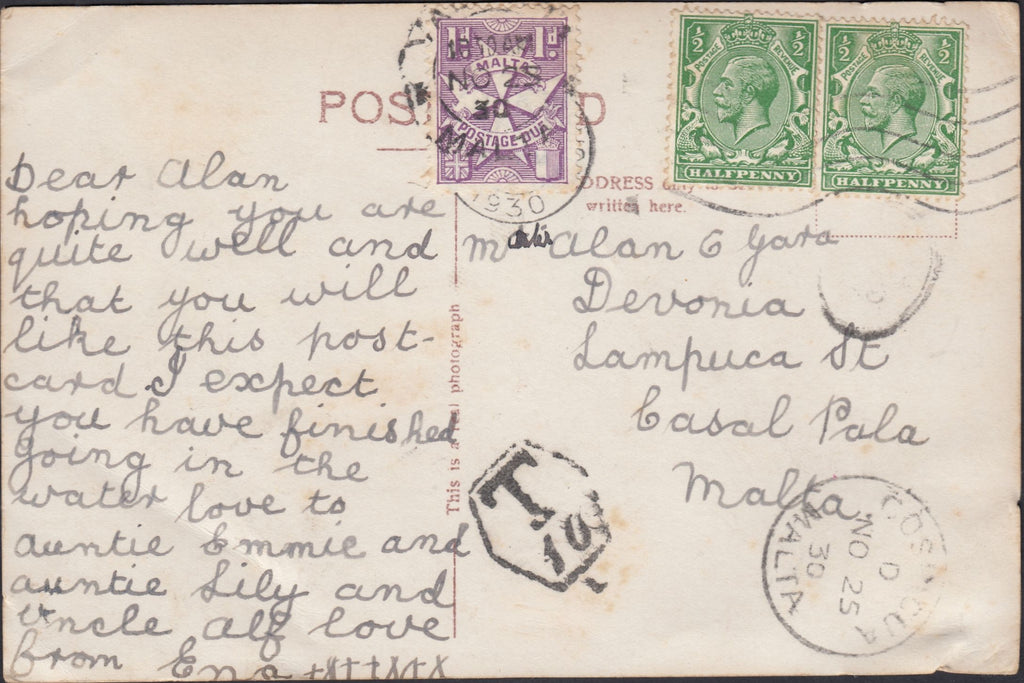 POS D
1d 1d
MALTA
POSTAGE DUE
10 30 AM
NO 25
30
MALTA
1930
1/2 1/2
POSTAGE REVENUE
HALFPENNY
1/2 1/2
POSTAGE REVENUE
HALFPENNY
DDRESS only
written here.
This is a real photograph
Dear Alan
hoping you are
quite well and
that you will
like this post-
card. I expect
you have finished
going in the
water love to
auntie Emmie and
auntie Lily and
Uncle Alf love
from Ena +X++X+X
Mr Alan G Gara
Devonia
Lampuca St
Casal Pala
Malta
T
10
COSPICUA
D
NO 25
30
MALTA